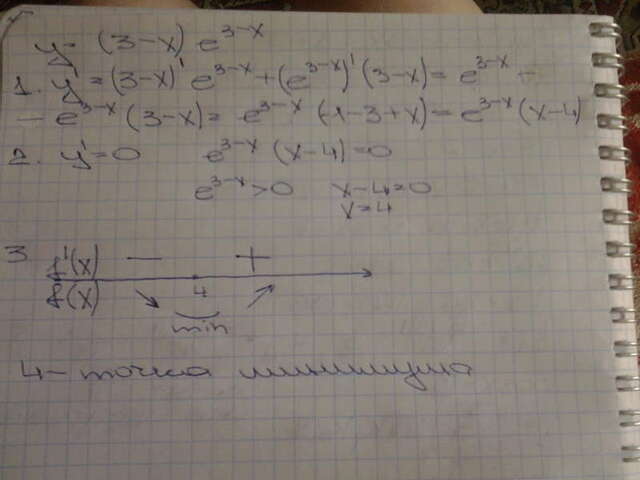 y= (3-x) e^{3-x}
1. y'=(3-x)' e^{3-x}+(e^{3-x})' (3-x)= e^{3-x} -
- e^{3-x} (3-x)= e^{3-x} (-1-3+x)= e^{3-x} (x-4)
2. y'=0 e^{3-x} (x-4)=0
e^{3-x}>0 x-4=0
x=4
3 f'(x) - +
f(x) ↘ 4 ↗
min
4- точка минимума